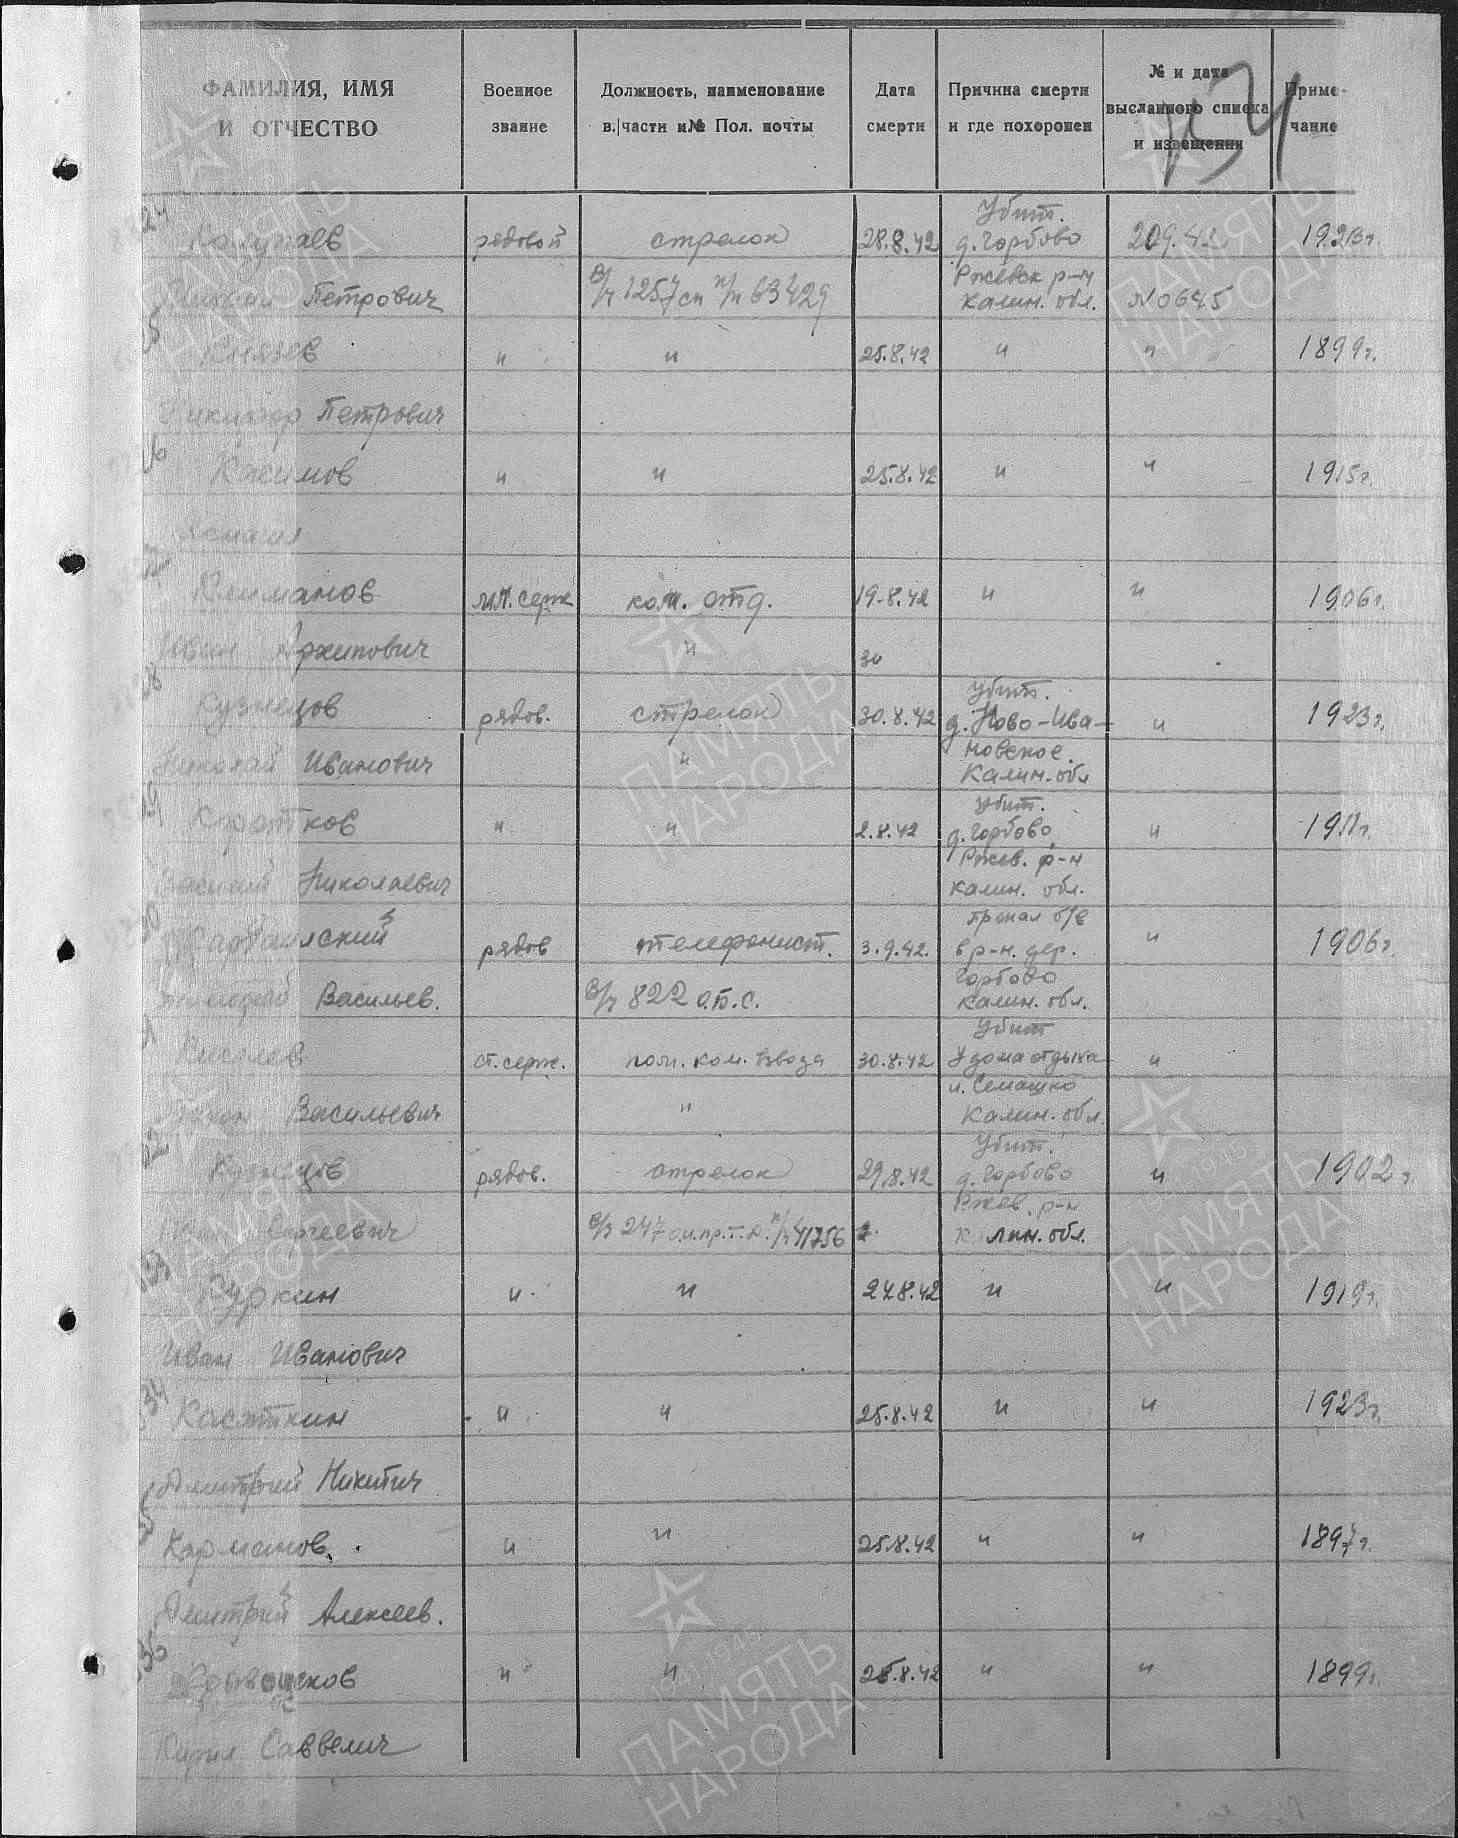 ФАМИЛИЯ, ИМЯ
И ОТЧЕСТВО
Военное
звание
Должность, наименование
в. части и № Пол. почты
Дата
смерти
Причина смерти
и где похоронен
№ и дата
высланного списка
и извещения
Приме-
чание
Колупаев рядовой стрелок 28.8.42 Убит. д. Горбово 1923 г.
Петрович в/ч 1257 сп п/п 63429 Ржевск р-н Калин. обл. № 0645
Князев " " 25.8.42 " " 1899 г.
Никифор Петрович
Касимов " " 25.8.42 " " 1915 г.
Климанов мл. серж ком. отд. 19.8.42 " " 1906 г.
Иван Архипович " 30
Кузнецов рядов. стрелок 30.8.42 Убит. д. Ново-Ива- " 1923 г.
Николай Иванович " новское. Калин. обл
Коротков " " 2.8.42 Убит. д. Горбово " 1911 г.
Василий Николаевич Ржев. р-н Калин. обл.
рядов телефонист. 3.9.42. пропал б/в в р-н. дер. " 1906 г.
Васильев. в/ч 822 о.б.с. Горбово Калин. обл.
Киселев ст. серж. пом. ком. взвода 30.8.42 Убит У дома отдыха "
Васильевич " и. Семашко Калин. обл.
Кузнецов рядов. стрелок 29.8.42 Убит. д. Горбово " 1902 г.
Сергеевич в/ч 247 п/п 41756 Ржев. р-н Калин. обл.
Куркин " " 27.8.42 " " 1919 г.
Иван Иванович
Касаткин " " 25.8.42 " " 1923 г.
Дмитрий Никитич
Карманов. " " 25.8.42 " " 1897 г.
Дмитрий Алексеев.
" " 25.8.42 " " 1899 г.
Кирил Саввелич
ПАМЯТЬ
НАРОДА